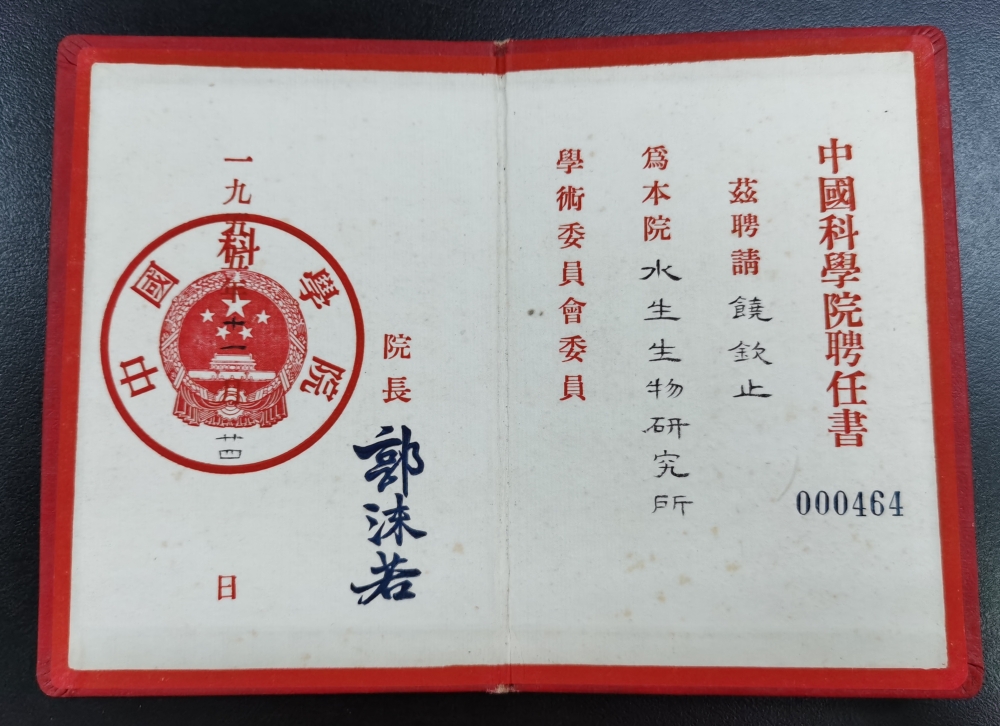 中國科學院聘任書
000464
茲聘請饒欽止
爲本院水生生物研究所
學術委員會委員
院長 郭沫若
一九五 年十一月廿四日
中國科學院